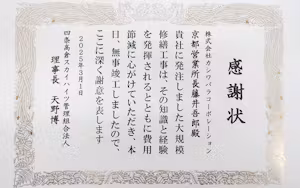 感謝状
株式会社カシワバラコーポレーション
京都営業所長藤井吾郎殿
貴社に発注しました大規模
修繕工事は、その知識と経験
を発揮されるとともに費用
節減に心がけていただき、本
日、無事竣工しましたので、
ここに深く謝意を表します
2025年3月1日
四条高倉スカイハイツ管理組合法人
理事長 天野博